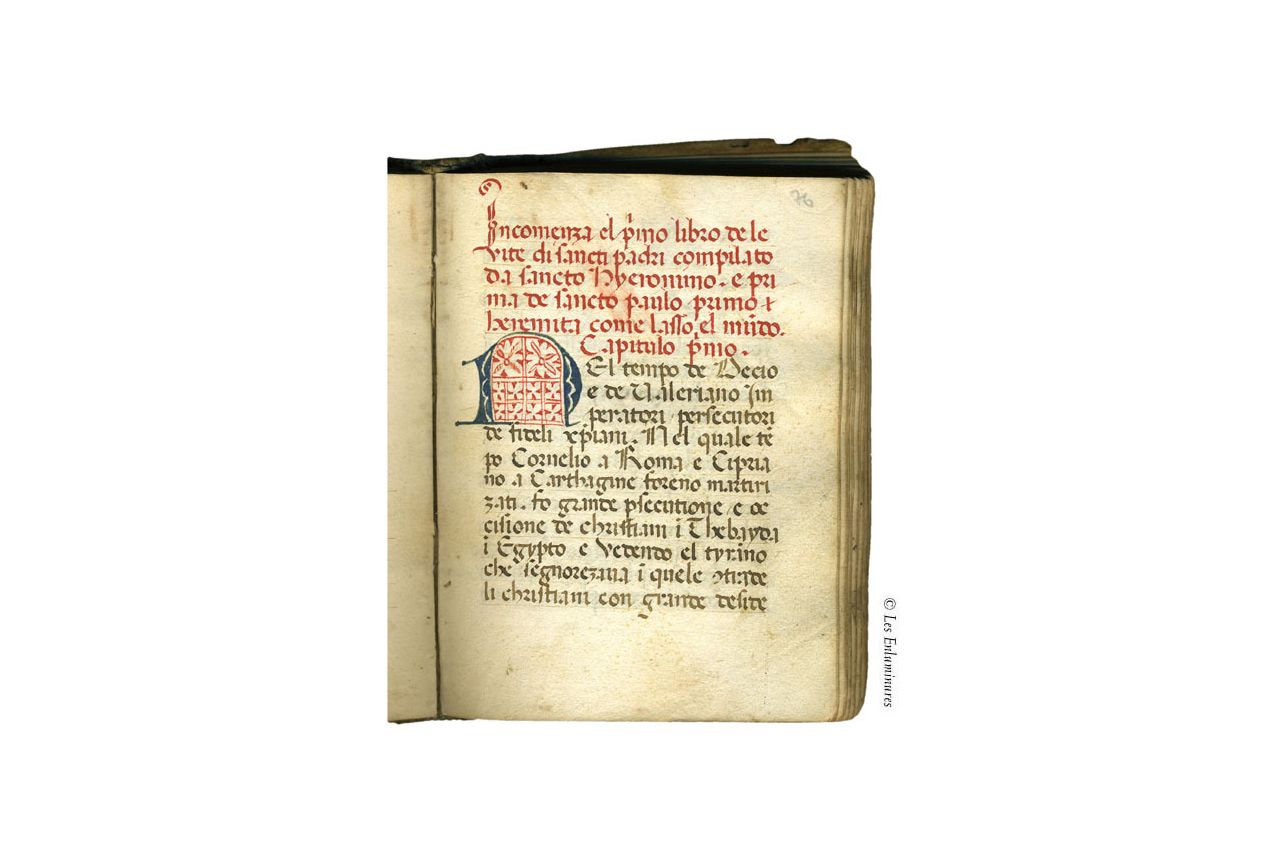 76
Incomenza el p̄mo libro de le
vite di sancti padri compilato
da sancto Hyeronimo. e pri
ma de sancto paulo primo
heremita come lasso el mūdo.
Capitulo p̄mo.
NEl tempo de Decio
e de Valeriano Im
peratori persecutori
de fideli xp̄iani. Nel quale tē
po Cornelio a Roma e Cipria
no a Carthagine foreno martiri
zati. fo grande p̄secutione e oc
cisione de christiani ī Thebayda
ī Egypto e vedendo el tyrāno
che segnorezaua ī quele ꝯtrade
li christiani con grande deside
© Les Enluminures